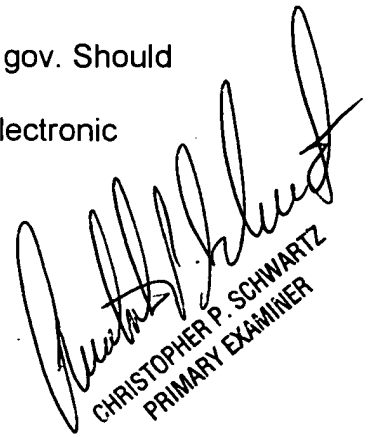 gov. Should
lectronic
CHRISTOPHER P. SCHWARTZ
PRIMARY EXAMINER